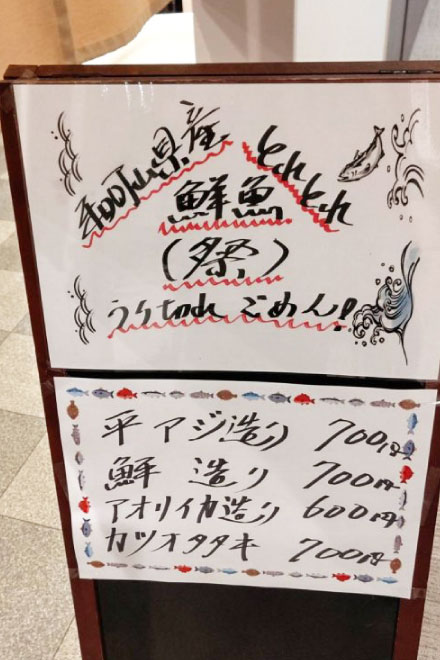 和歌山県産
とれとれ
鮮魚
(祭)
うり切れ ごめん!
平アジ造り 700円
鮮 造り 700円
アオリイカ造り 600円
カツオタタキ 700円